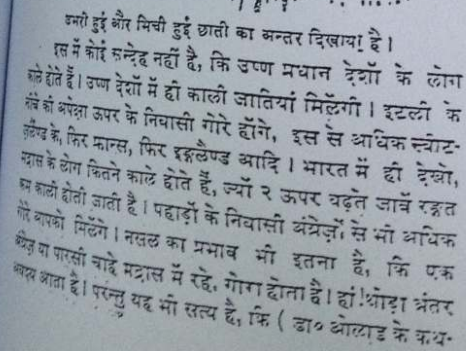 उभरी हुई और मिची हुई छाती का अन्तर दिखाया है।
इस में कोई सन्देह नहीं है, कि उष्ण प्रधान देशों के लोग
काले होते हैं। उष्ण देशों में ही काली जातियां मिलेंगी। इटली के
नीचे की अपेक्षा ऊपर के निवासी गोरे होंगे, इस से अधिक स्वीट-
ज़लैण्ड के, फिर फ्रान्स, फिर इङ्गलैण्ड आदि। भारत में ही देखो,
मद्रास के लोग कितने काले होते हैं, ज्यों २ ऊपर बढ़ते जावें रङ्गत
कम काली होती जाती है। पहाड़ों के निवासी अंग्रेज़ों से भी अधिक
गोरे आपको मिलेंगे। नसल का प्रभाव भी इतना है, कि एक
अंग्रेज़ या पारसी चाहे मद्रास में रहे, गोरा होता है। हां! थोड़ा अंतर
अवश्य आता है। परन्तु यह भी सत्य है, कि ( डा० ओलाड के कथ-